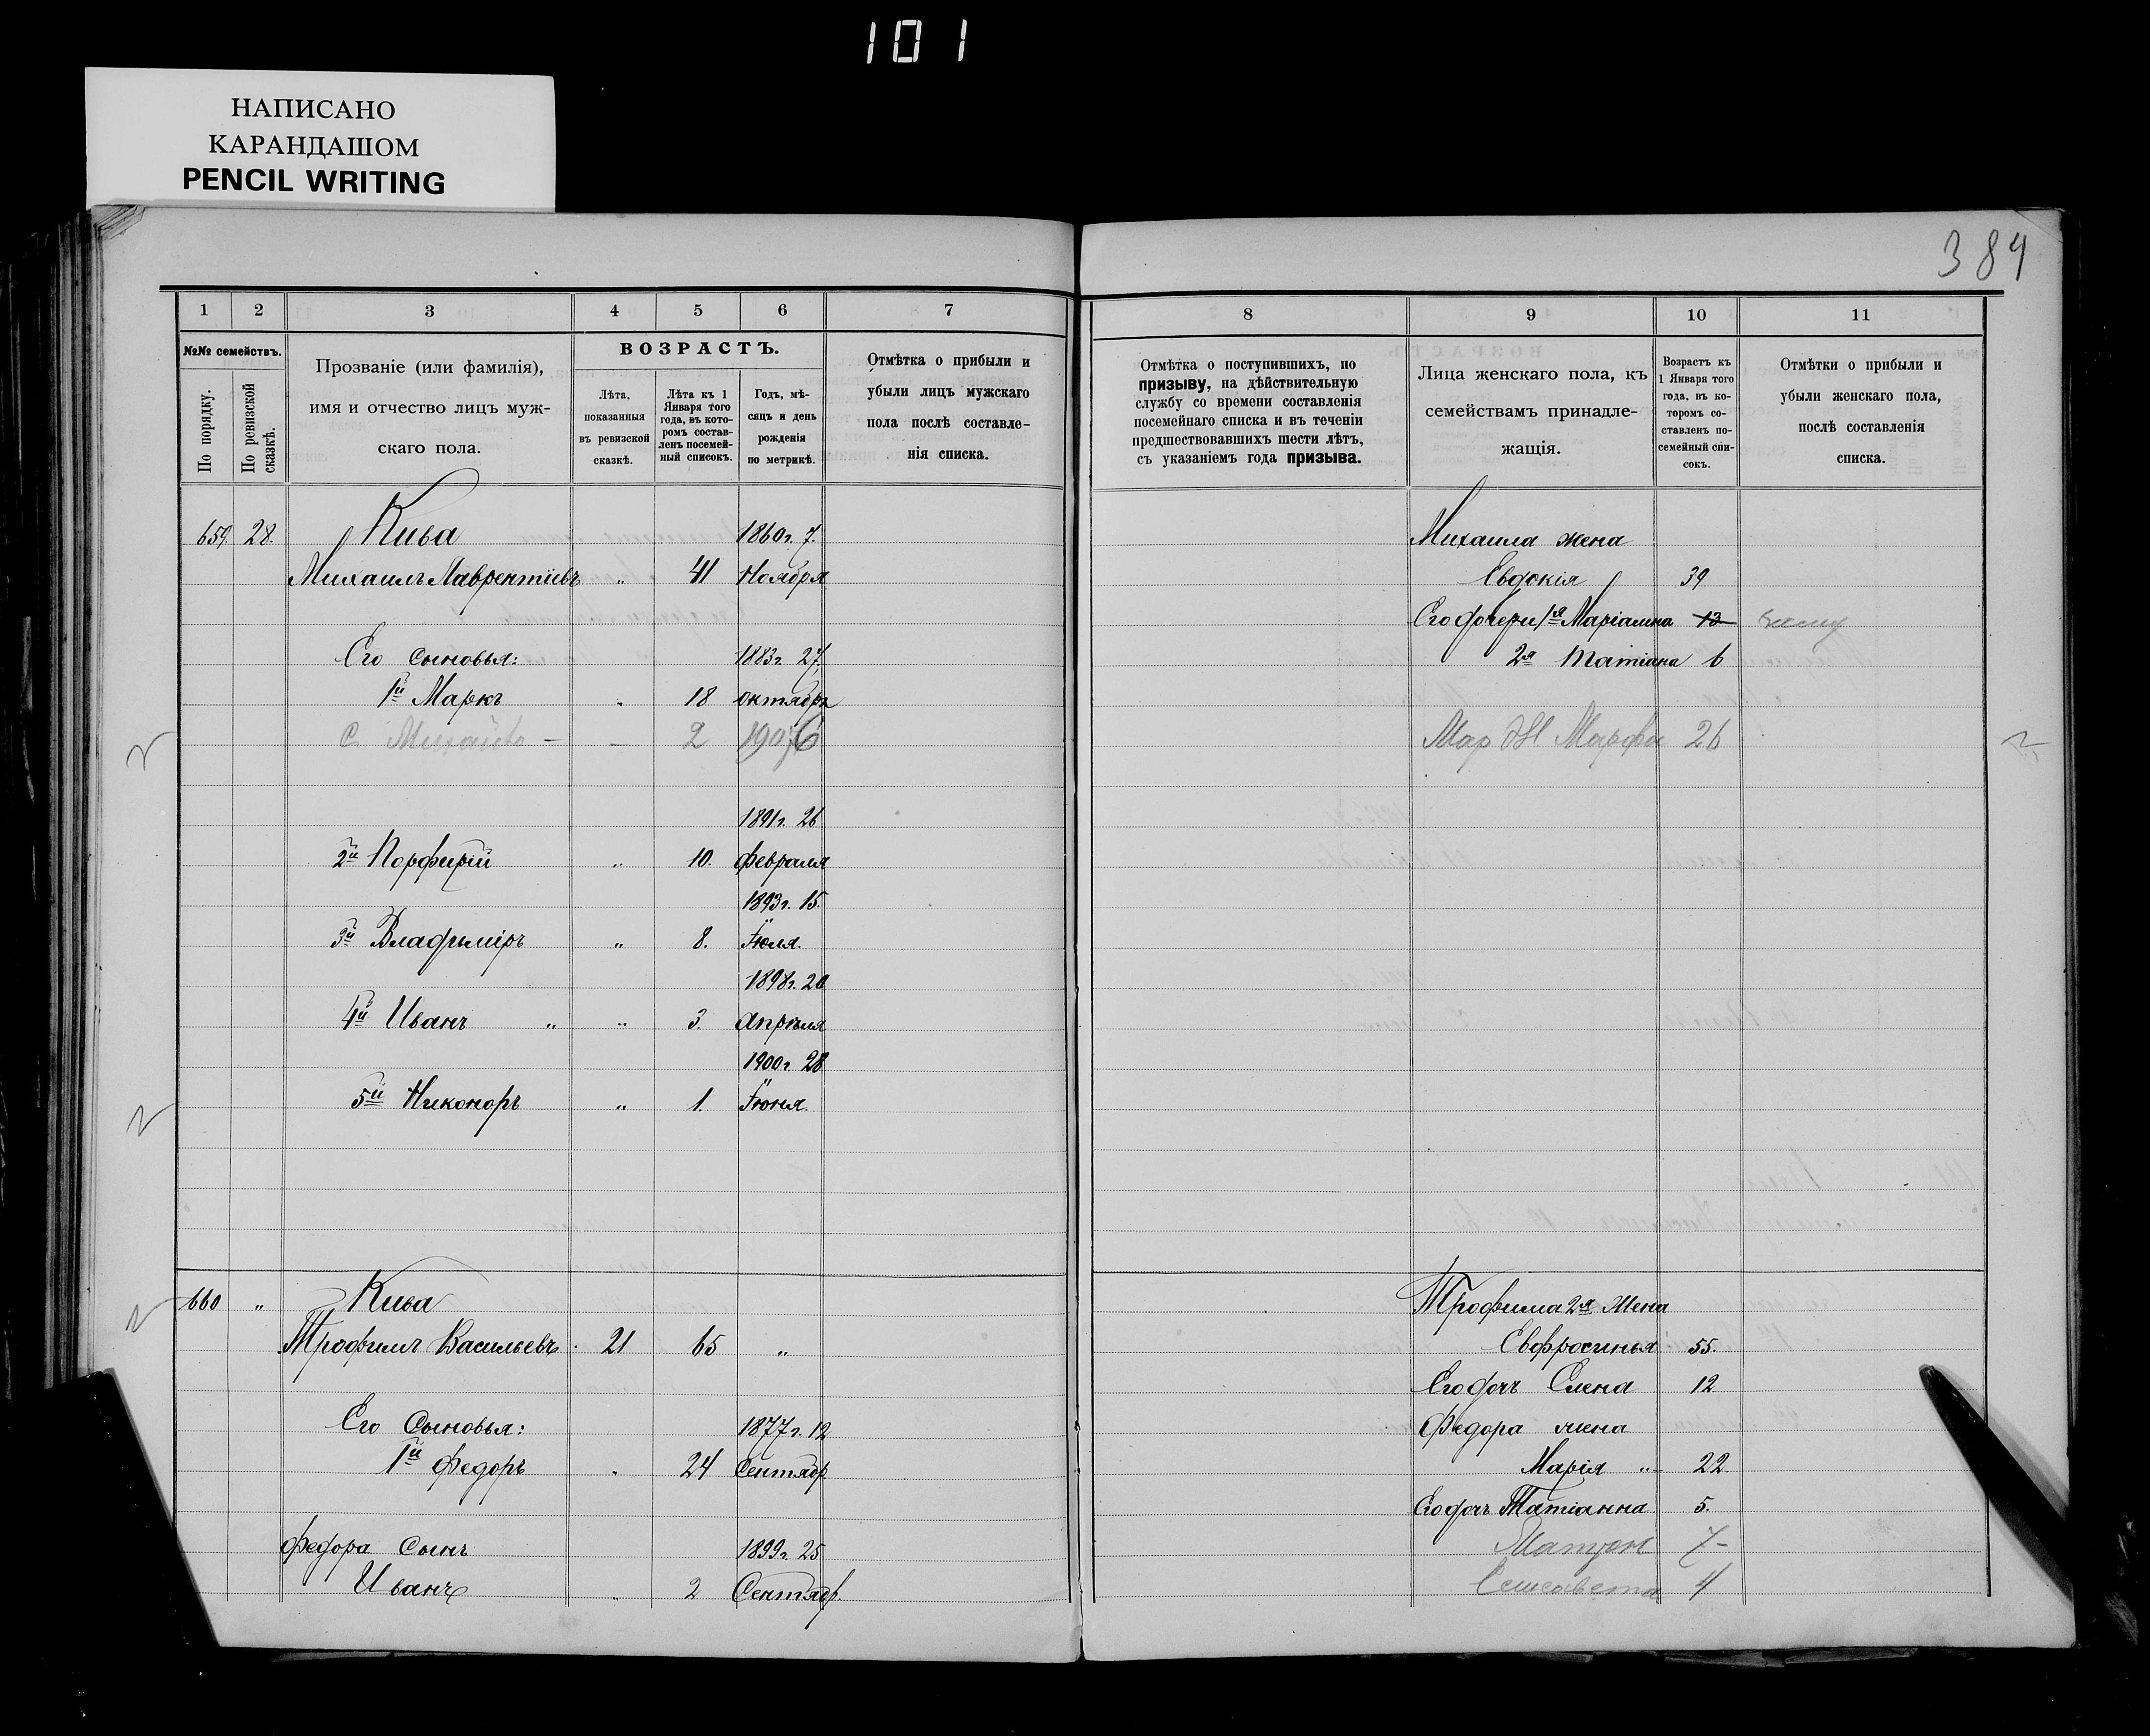 101
НАПИСАНО
КАРАНДАШОМ
PENCIL WRITING
384
1 2 3 4 5 6 7
№№ семействъ.
По порядку.
По ревизской сказкѣ.
Прозваніе (или фамилія),
имя и отчество лицъ муж-
скаго пола.
ВОЗРАСТЪ.
Лѣта,
показанныя
въ ревизской
сказкѣ.
Лѣта къ 1
Января того
года, въ кото-
ромъ состав-
ленъ посемей-
ный списокъ.
Годъ, мѣ-
сяцъ и день
рожденія
по метрикѣ.
Отмѣтка о прибыли и
убыли лицъ мужскаго
пола послѣ составле-
нія списка.
659. 28. Кива 1860 г. 7.
Михаилъ Лаврентіевъ „ 41 Ноября
Его сыновья: 1883 г. 27
1й Маркъ „ 18 октября
с. Михайло - - 2 1906
1891 г. 26
2й Порфирій „ 10. февраля
1893 г. 15.
3й Владыміръ „ 8. Іюля.
1898 г. 20
4й Иванъ „ „ 3. Апрѣля
1900 г. 28
5й Никоноръ „ 1. Іюня.
660 „ Кива
Трофимъ Васильевъ. 21 65 „
Его Сыновья: 1877 г. 12
1й Федоръ „ 24 Сентябр
Федора Сынъ 1899 г. 25
Иванъ „ 2 Сентябр.
8 9 10 11
Отмѣтка о поступившихъ, по
призыву, на дѣйствительную
службу со времени составленія
посемейнаго списка и въ теченіи
предшествовавшихъ шести лѣтъ,
съ указаніемъ года призыва.
Лица женскаго пола, къ
семействамъ принадле-
жащія.
Возрастъ къ
1 Января того
года, въ ко-
торомъ со-
ставленъ по-
семейный спи-
сокъ.
Отмѣтки о прибыли и
убыли женскаго пола,
послѣ составленія
списка.
Михаила жена
Евдокія 39
Его дочери 1я Маріамна 13
2я Татіана 6
Мар Ж Марфа 26
Трофима 2я Жена
Евфросинья 55.
Его дочь Елена 12
Федора жена
Марія „ 22
Его дочь Татіанна 5.
7-
Елисавета 4